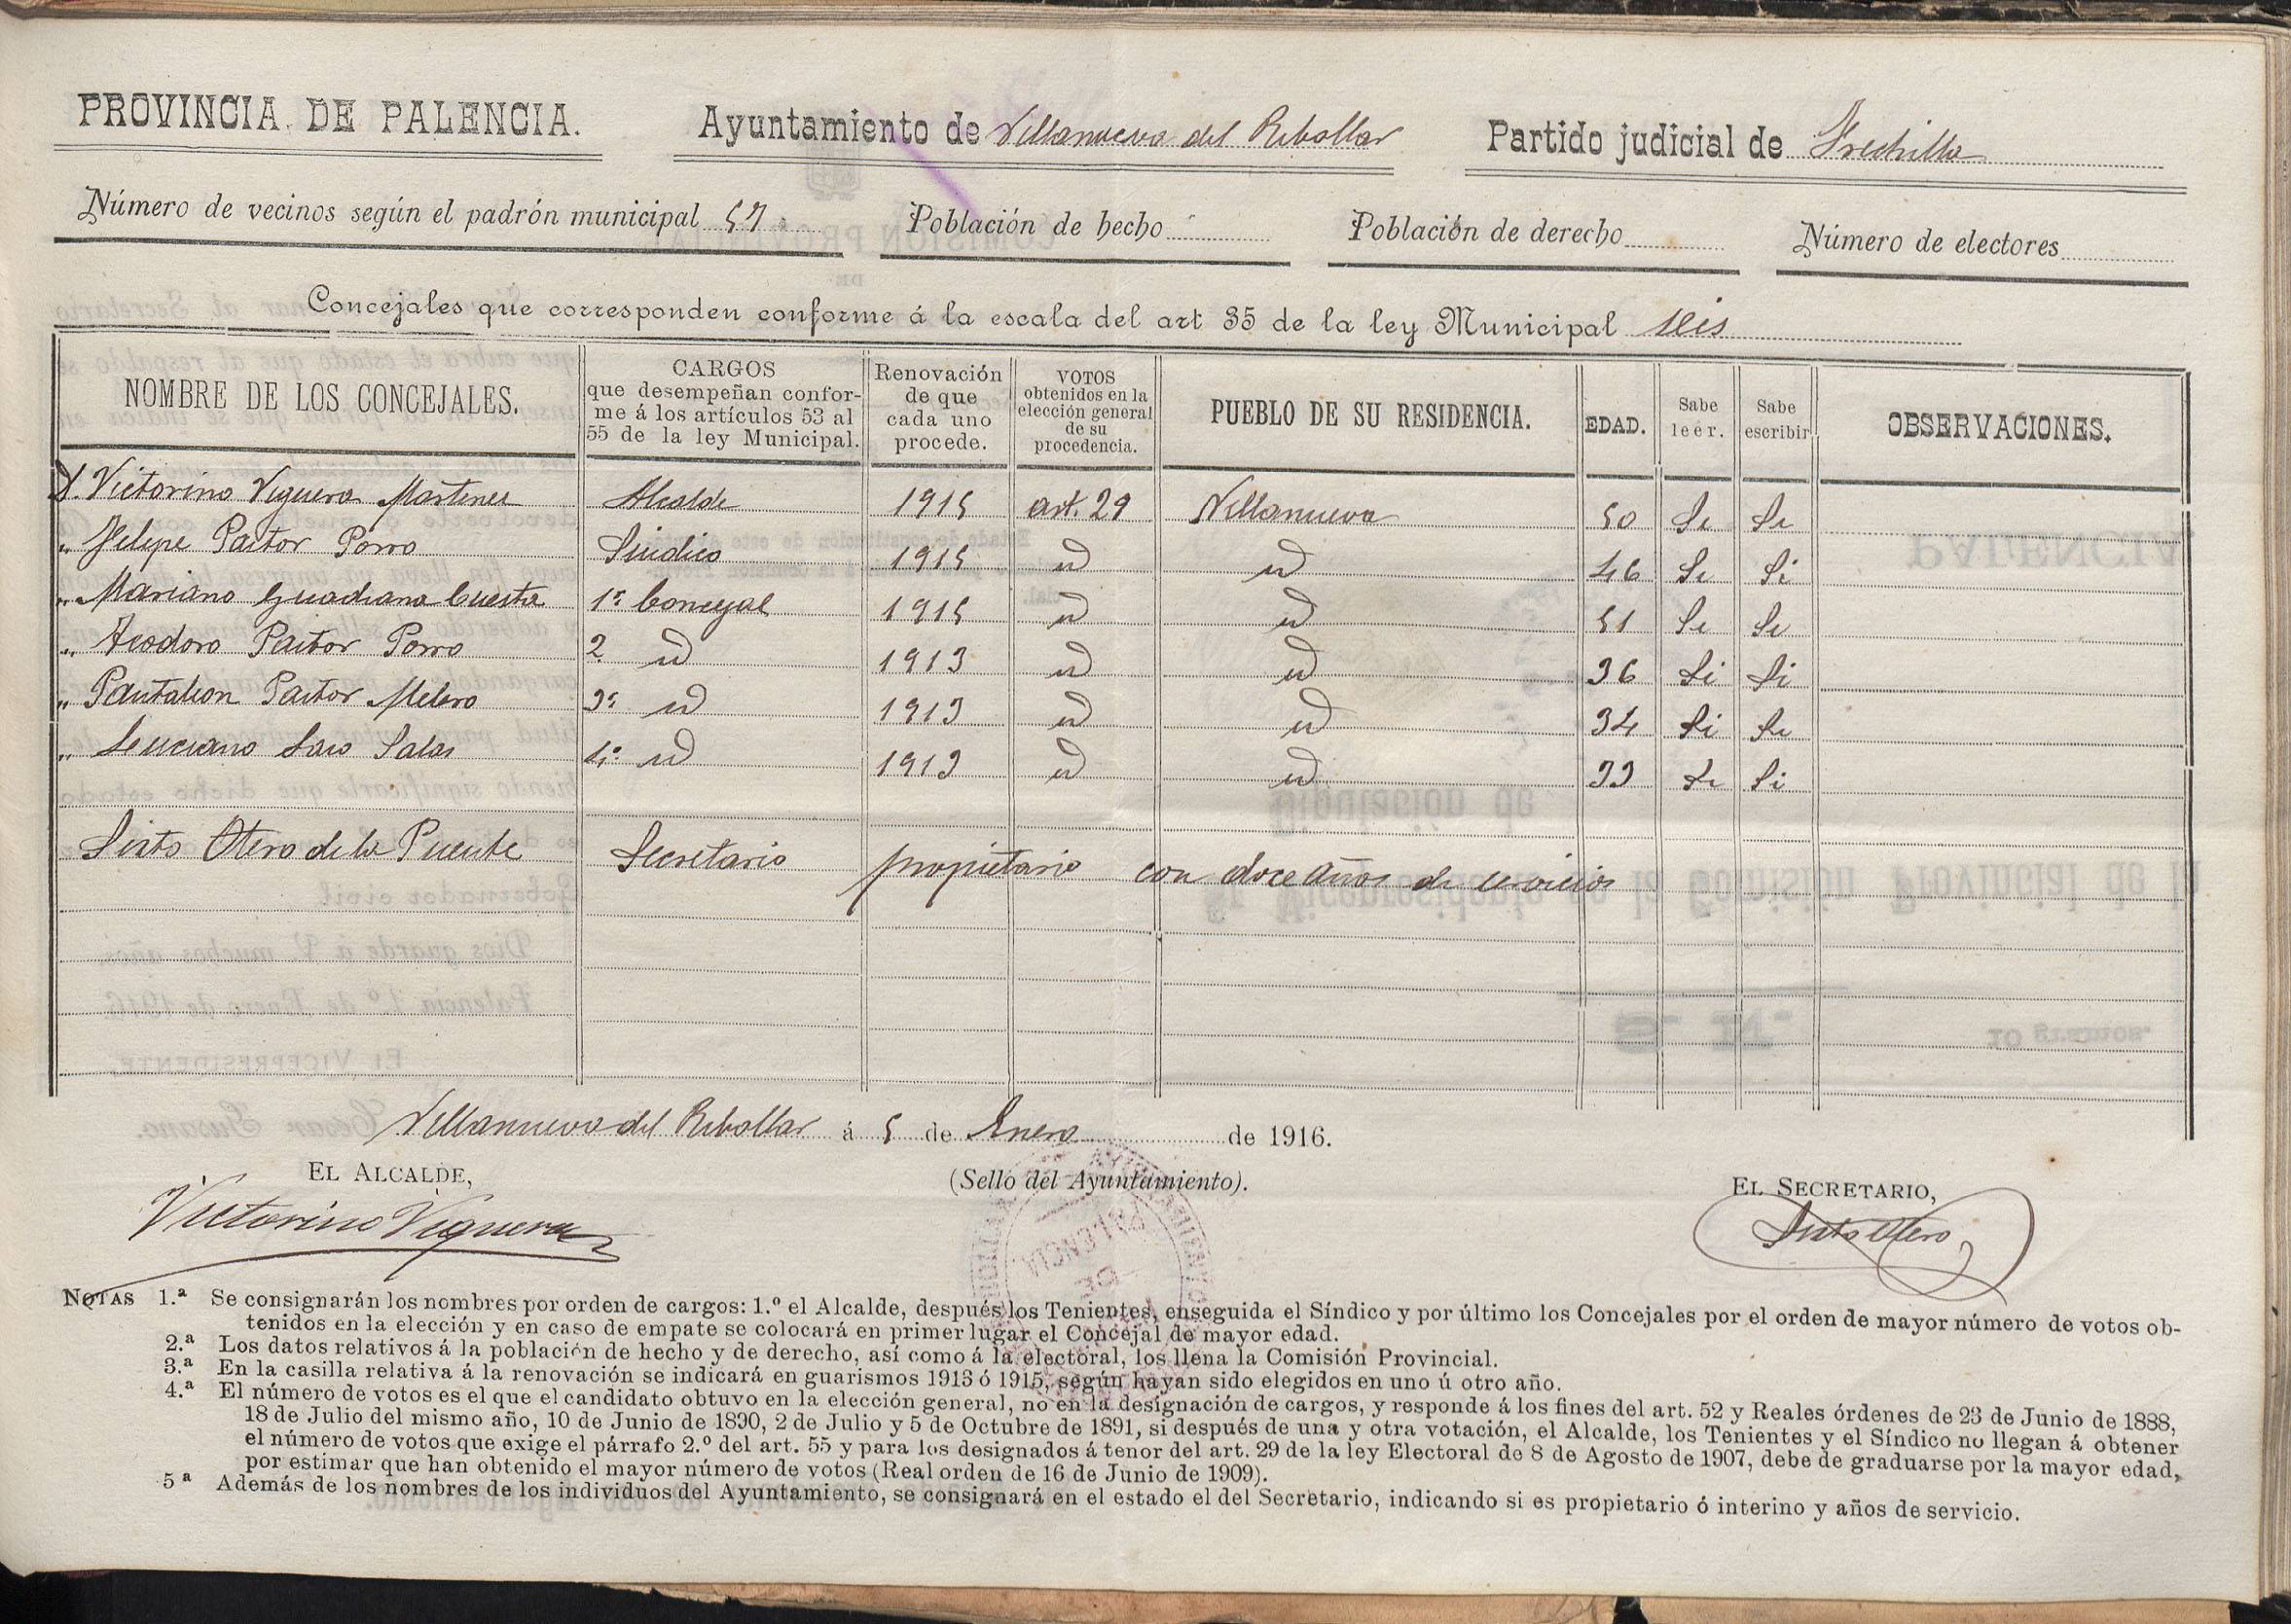 PROVINCIA DE PALENCIA. Ayuntamiento de Villanueva del Rebollar Partido judicial de Frechilla
Número de vecinos según el padrón municipal 57 Población de hecho Población de derecho Número de electores
Concejales que corresponden conforme á la escala del art 35 de la ley Municipal seis
NOMBRE DE LOS CONCEJALES. CARGOS que desempeñan confor-me á los artículos 53 al 55 de la ley Municipal. Renovación de que cada uno procede. VOTOS obtenidos en la elección general de su procedencia. PUEBLO DE SU RESIDENCIA. EDAD. Sabe leér. Sabe escribir OBSERVACIONES.
D. Victorino Viguera Martinez Alcalde 1915 art. 29 Villanueva 50 Si Si
" Felipe Pastor Porro Sindico 1915 id id 46 Si Si
" Mariano Guadiana Cuesta 1º Concejal 1915 id id 51 Si Si
" Teodoro Pastor Porro 2. id 1913 id id 36 Si Si
" Pantaleon Pastor Melero 3º id 1913 id id 34 Si Si
" Luciano Salas 4º id 1913 id id 33 Si Si
Sixto Otero de la Puente Secretario propietario con doce años de servicios
Villanueva del Rebollar á 5 de Enero de 1916.
EL ALCALDE, (Sello del Ayuntamiento). EL SECRETARIO,
Victorino Viguera Sixto Otero
NOTAS 1.ª Se consignarán los nombres por orden de cargos: 1.º el Alcalde, después los Tenientes, enseguida el Síndico y por último los Concejales por el orden de mayor número de votos ob-
tenidos en la elección y en caso de empate se colocará en primer lugar el Concejal de mayor edad.
2.ª Los datos relativos á la población de hecho y de derecho, así como á la electoral, los llena la Comisión Provincial.
3.ª En la casilla relativa á la renovación se indicará en guarismos 1913 ó 1915, según hayan sido elegidos en uno ú otro año.
4.ª El número de votos es el que el candidato obtuvo en la elección general, no en la designación de cargos, y responde á los fines del art. 52 y Reales órdenes de 23 de Junio de 1888,
18 de Julio del mismo año, 10 de Junio de 1890, 2 de Julio y 5 de Octubre de 1891, si después de una y otra votación, el Alcalde, los Tenientes y el Síndico no llegan á obtener
el número de votos que exige el párrafo 2.º del art. 55 y para los designados á tenor del art. 29 de la ley Electoral de 8 de Agosto de 1907, debe de graduarse por la mayor edad,
por estimar que han obtenido el mayor número de votos (Real orden de 16 de Junio de 1909).
5ª Además de los nombres de los individuos del Ayuntamiento, se consignará en el estado el del Secretario, indicando si es propietario ó interino y años de servicio.